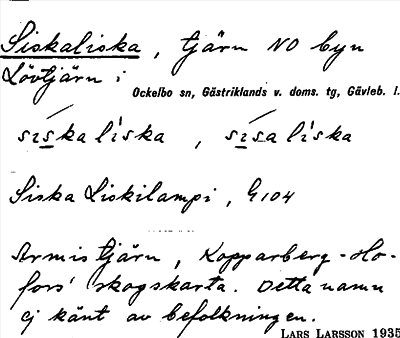 Siskaliska, tjärn NO byn
Lövtjärn i
Ockelbo sn, Gästriklands v. doms. tg, Gävleb. l.
siskaliska, sisaliska
Siska Liskilampi, G104
Armistjärn, Kopparberg-Ho-
fors' skogskarta. Detta namn
ej känt av befolkningen.
LARS LARSSON 1935